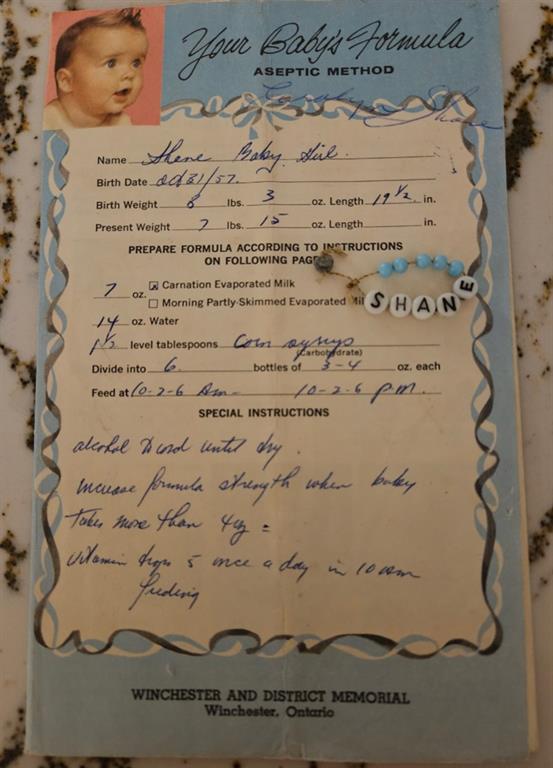 Your Baby's Formula
ASEPTIC METHOD
Shane
Name Shane Baby Girl.
Birth Date Oct 31/57.
Birth Weight 8 lbs. 3 oz. Length 19 1/2 in.
Present Weight 7 lbs. 15 oz. Length in.
PREPARE FORMULA ACCORDING TO INSTRUCTIONS
ON FOLLOWING PAGE
7 oz. Carnation Evaporated Milk
Morning Partly-Skimmed Evaporated Milk
SHANE
14 oz. Water
1 1/2 level tablespoons Corn syrup
(Carbohydrate)
Divide into 6 bottles of 3-4 oz. each
Feed at 10-2-6 Am- 10-2-6 pm.
SPECIAL INSTRUCTIONS
alcohol to cord until dry.
increase formula strength when baby
takes more than 4 oz =
vitamin drops 5 once a day in 10 am
feeding
WINCHESTER AND DISTRICT MEMORIAL
Winchester, Ontario